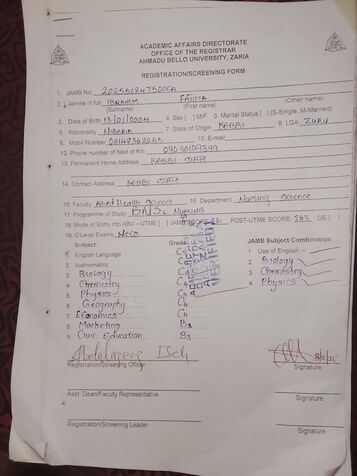 ACADEMIC AFFAIRS DIRECTORATE
OFFICE OF THE REGISTRAR
AHMADU BELLO UNIVERSITY, ZARIA
REGISTRATION/SCREENING FORM
1. JAMB No: 202551847500GA
2. Names in full IBRAHIM FATIMA
(Surname) (First name) (Other name)
3. Date of Birth 13/01/2004 4. Sex [ ] M/F 5. Marital Status [ ] (S-Single, M-Married)
6. Nationality NIGERIA 7. State of Origin KEBBI 8. LGA ZURU
9. Mobil Number 08149362265 10. E-mail
12. Phone number of Next of Kin 09030109399
13. Permanent Home Address KEBBI STATE
14. Contact Address KEBBI STATE
15. Faculty Allied Health Science 16. Department Nursing Science
17. Programme of Study BNSc Nursing
18. Mode of Entry into ABU - UTME [ ] POST-UTME SCORE: 263 DE [ ]
19. O'Level Exams Neco
Subject Grade JAMB Subject Combination
1. English Language 1. Use of English
2. Mathematics 2. Biology
3 Biology C4 3. Chemistry
4 Chemistry C4 4. Physics
5 Physics C4
6 Geography C4
7 Economics C4
8 Marketing B3
9 Civic Education B3
VERIFIED
Registration/Screening Officer Signature
Asst. Dean/Faculty Representative Signature
Registration/Screening Leader Signature